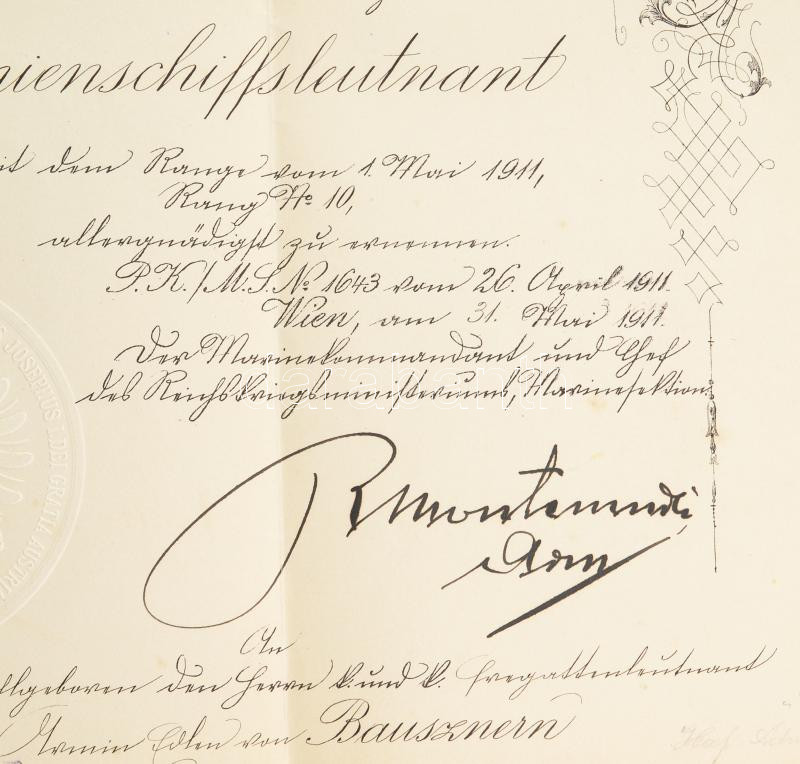 nienschiffsleutnant
it dem Range vom 1. Mai 1911,
Rang No 10,
allergnädigst zu ernennen.
P.K./M.S. No 1643 vom 26. April 1911.
Wien, am 31. Mai 1911.
Der Marinekommandant und Chef
des Reichskriegsministeriums, Marinesektion
JOSEPHUS I. DEI GRATIA AUSTRIA
RMontecuccoli
Adm
An
lgeboren den Herrn k. und k. Fregattenleutnant
Armin Edlen von Bausznern